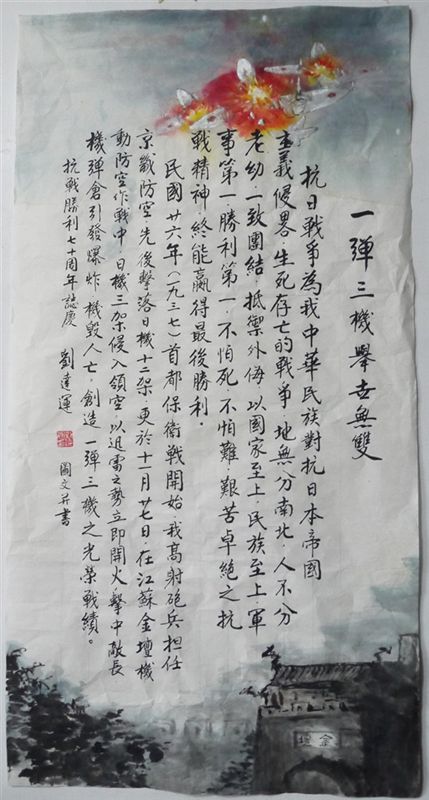 一彈三機舉世無雙
抗日戰爭為我中華民族對抗日本帝國
主義侵畧,生死存亡的戰爭,地無分南北,人不分
老幼,一致團結,抵禦外侮,以國家至上,民族至上,軍
事第一,勝利第一,不怕死,不怕難,艱苦卓絕之抗
戰精神,終能贏得最後勝利.
民國廿六年(一九三七)首都保衛戰開始,我高射砲兵担任
京畿防空,先後擊落日機十二架,更於十一月廿七日在江蘇金壇機
動防空作戰中,日機三架侵入領空,以迅雷之勢立即開火,擊中敵長
機彈倉引發爆炸,機毀人亡,創造一彈三機之光榮戰績。
抗戰勝利七十周年誌慶 劉達運 圖文并書
金壇